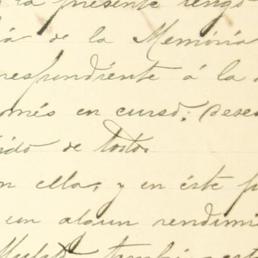 la presente tengo
ia de la Memória
respondiente á la
més en curso; Desea
ido de todos
n ella, y en éste
un algun rendimi
tambien est